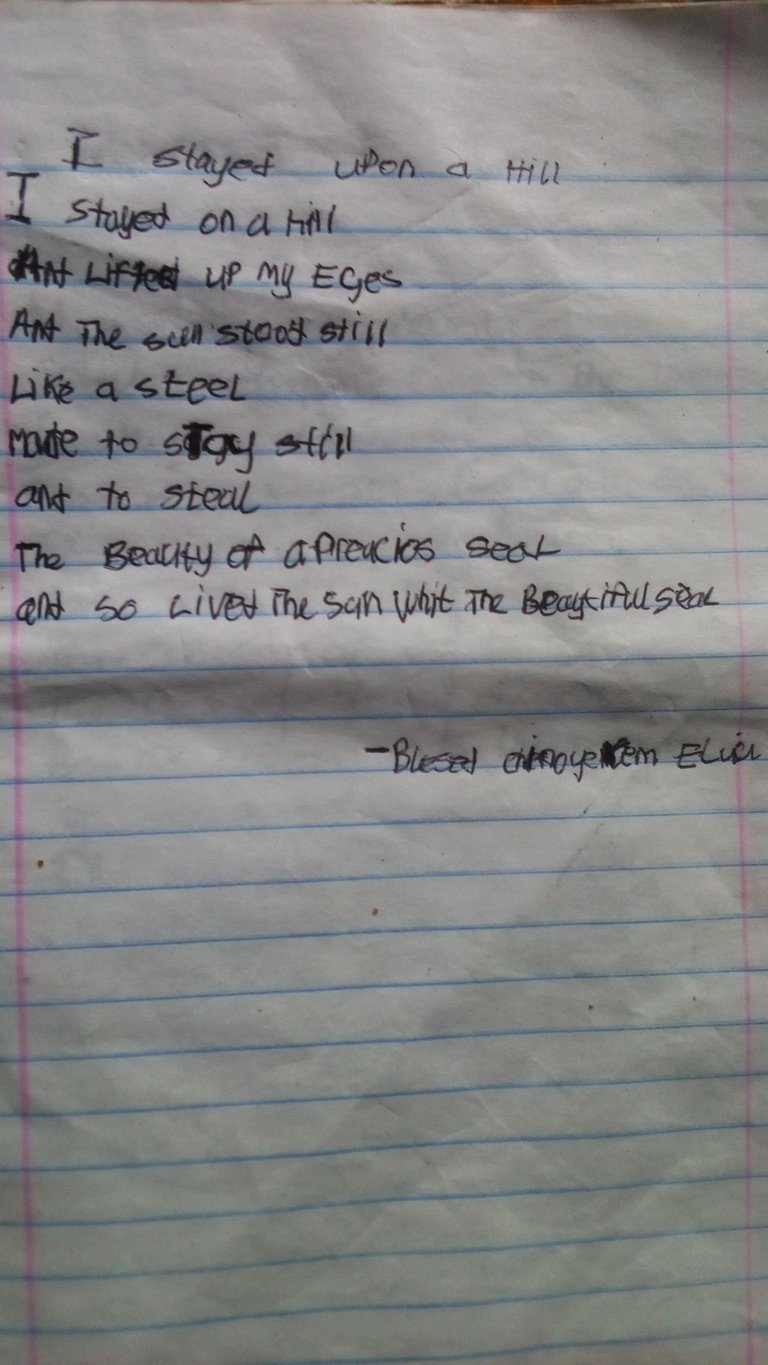 I stayed upon a Hill
I stayed on a Hill
And Lifted up my Eyes
And The sun stood still
Like a steel
Made to stay still
and to steal
The Beauty of a Preacios seal
and so Lived The sun whit The Beautiful seal
-Blesed